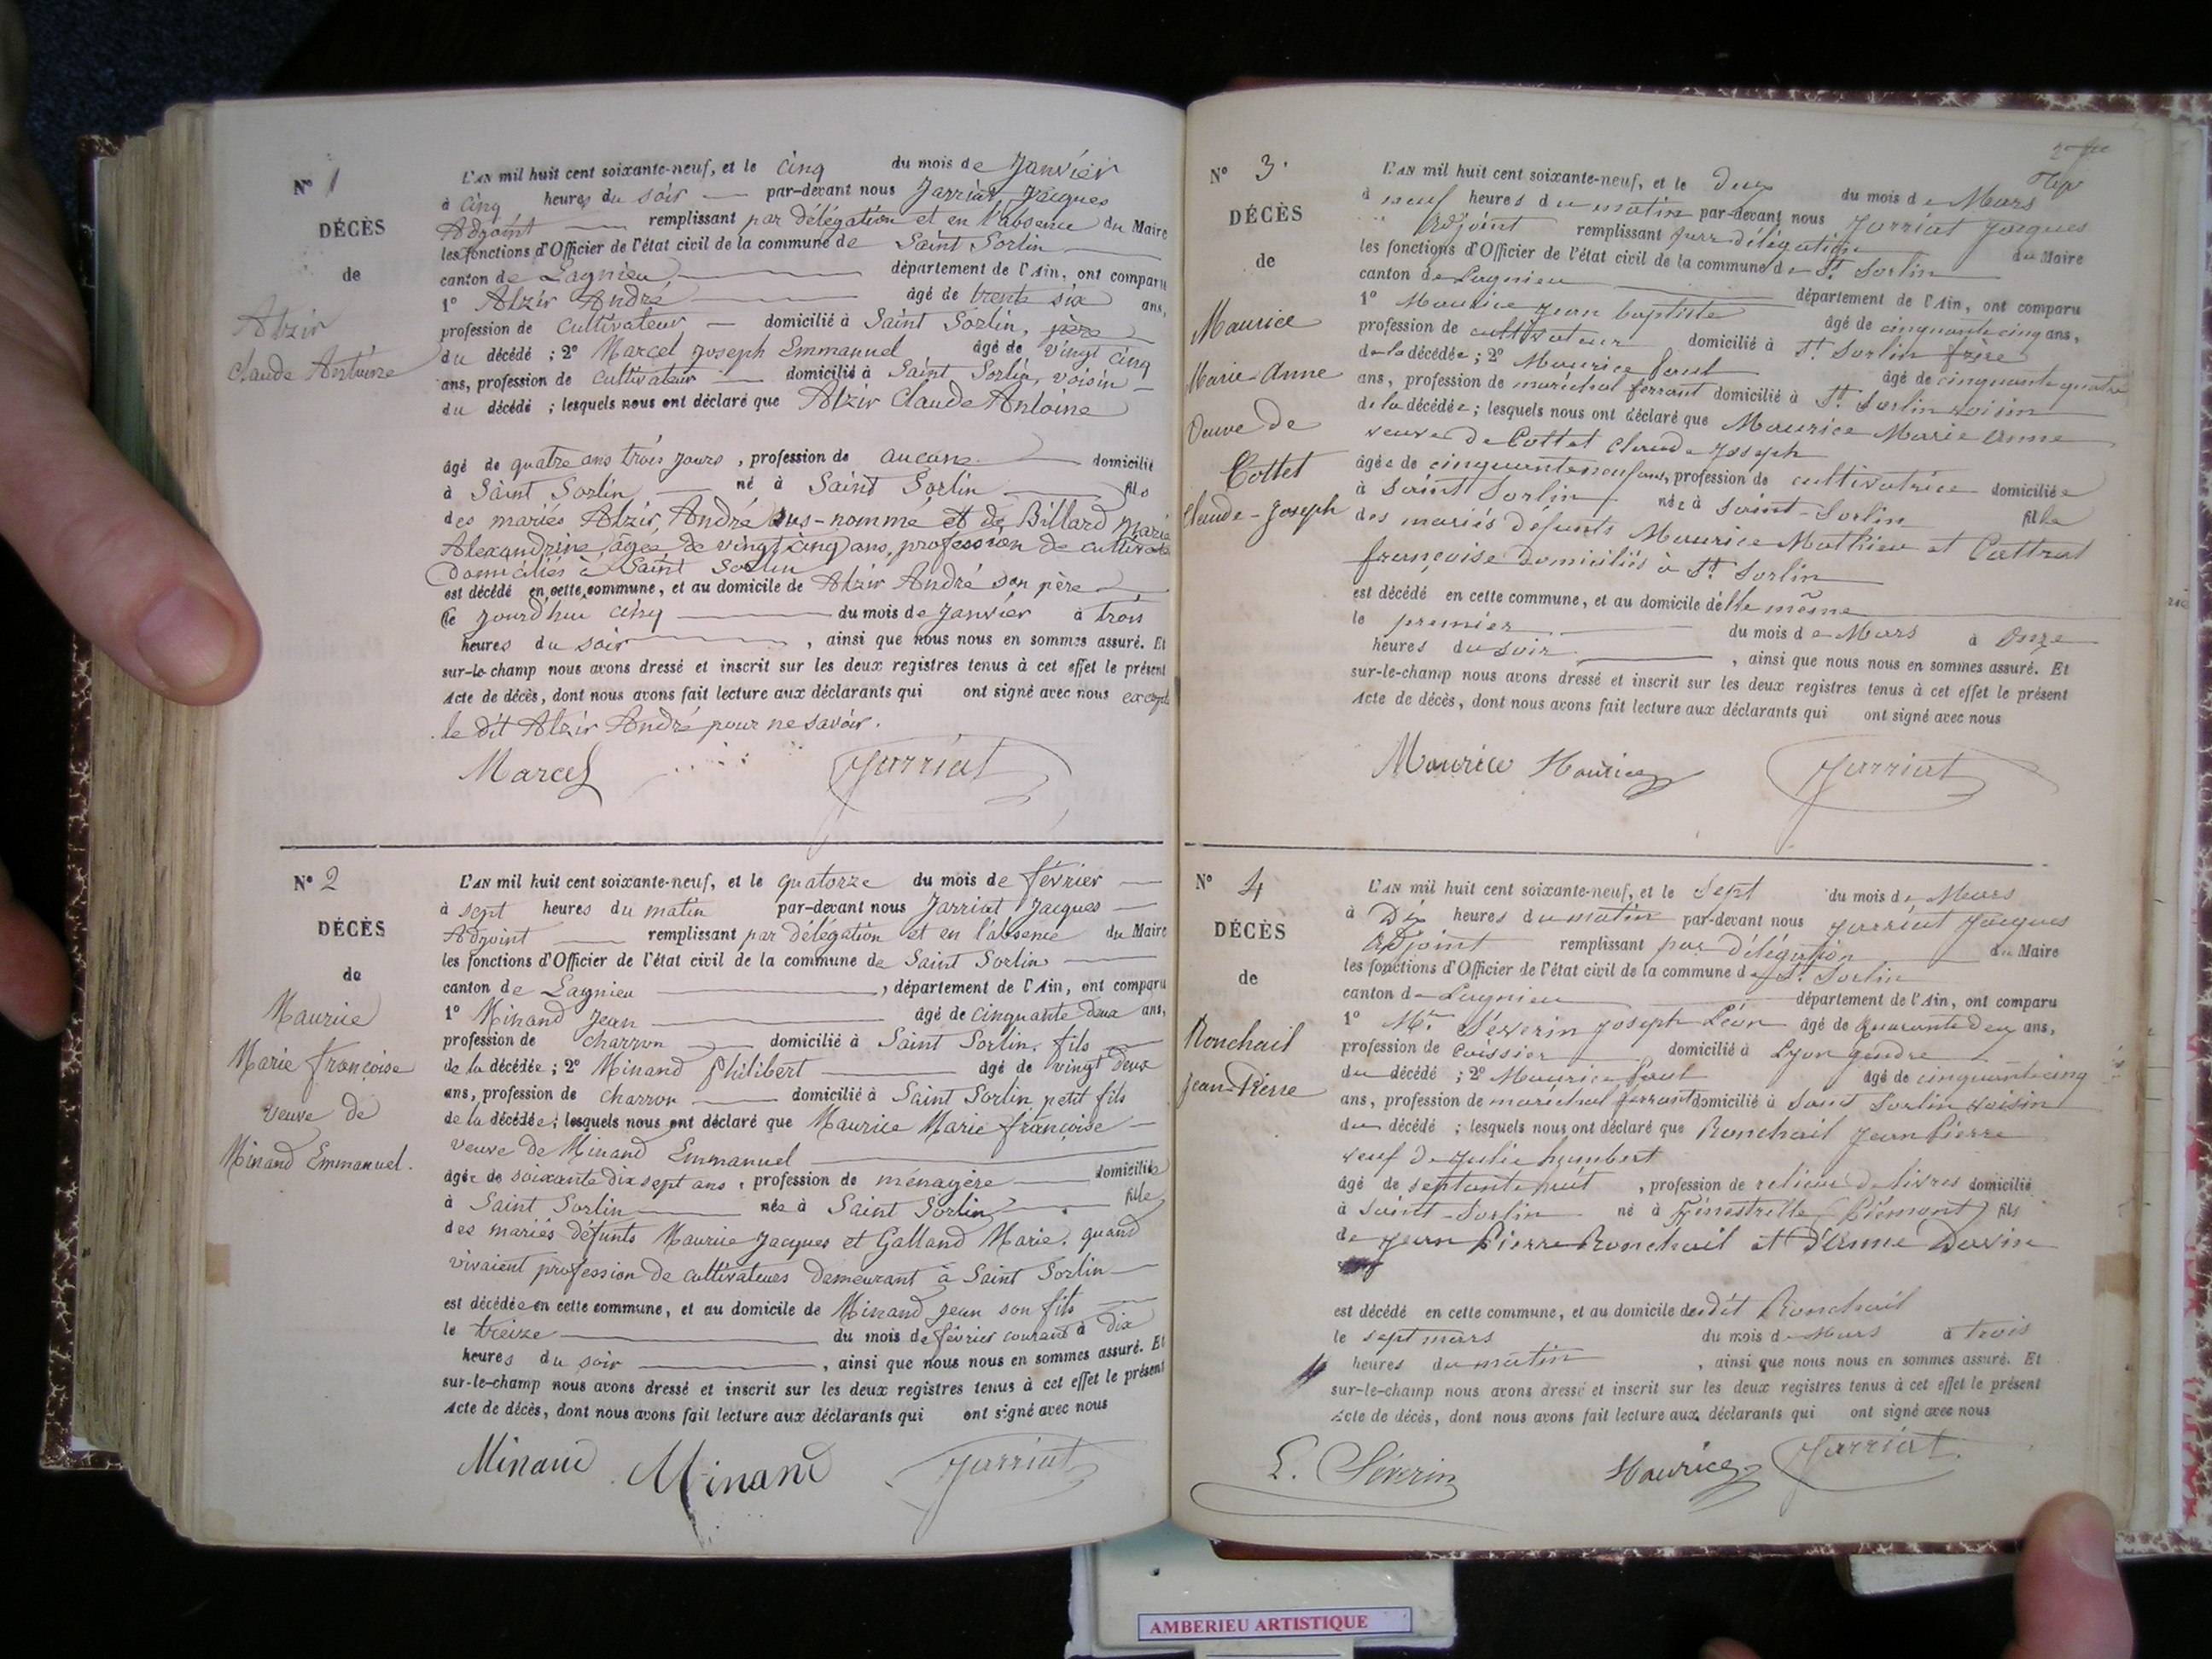 N° 1
DÉCÈS
de
Alzir
Claude Antoine
L'AN mil huit cent soixante-neuf, et le cinq du mois de Janvier
à cinq heures du soir par-devant nous Jarriat Jacques
Adjoint remplissant par délégation et en l'absence du Maire
les fonctions d'Officier de l'état civil de la commune de Saint Sorlin
canton de Lagnieu département de l'Ain, ont comparu
1° Alzir André âgé de trente six ans,
profession de cultivateur domicilié à Saint Sorlin, père
du décédé ; 2° Marcel Joseph Emmanuel âgé de vingt cinq
ans, profession de cultivateur domicilié à Saint Sorlin, voisin
du décédé ; lesquels nous ont déclaré que Alzir Claude Antoine
âgé de quatre ans trois jours, profession de aucune domicilié
à Saint Sorlin né à Saint Sorlin fils
des mariés Alzir André sus-nommé et de Billard Marie
Alexandrine âgée de vingt cinq ans, profession de
domiciliés à Saint Sorlin
est décédé en cette commune, et au domicile de Alzir André son père
Ce jourd'hui cinq du mois de Janvier à trois
heures du soir, ainsi que nous nous en sommes assuré. Et
sur-le-champ nous avons dressé et inscrit sur les deux registres tenus à cet effet le présent
Acte de décès, dont nous avons fait lecture aux déclarants qui ont signé avec nous excepté
le dit Alzir André pour ne savoir.
Marcel Jarriat
N° 2
DÉCÈS
de
Maurice
Marie françoise
veuve de
Minand Emmanuel.
L'AN mil huit cent soixante-neuf, et le quatorze du mois de février
à sept heures du matin par-devant nous Jarriat Jacques
Adjoint remplissant par délégation et en l'absence du Maire
les fonctions d'Officier de l'état civil de la commune de Saint Sorlin
canton de Lagnieu, département de l'Ain, ont comparu
1° Minand Jean âgé de cinquante deux ans,
profession de charron domicilié à Saint Sorlin, fils
de la décédée ; 2° Minand Philibert âgé de vingt deux
ans, profession de charron domicilié à Saint Sorlin petit fils
de la décédée ; lesquels nous ont déclaré que Maurice Marie françoise
veuve de Minand Emmanuel
âgée de soixante dix sept ans, profession de ménagère domiciliée
à Saint Sorlin née à Saint Sorlin fille
des mariés défunts Maurice Jacques et Galland Marie. quand
vivaient profession de cultivateurs demeurant à Saint Sorlin
est décédée en cette commune, et au domicile de Minand Jean son fils
le treize du mois de février courant à dix
heures du soir, ainsi que nous nous en sommes assuré. Et
sur-le-champ nous avons dressé et inscrit sur les deux registres tenus à cet effet le présent
Acte de décès, dont nous avons fait lecture aux déclarants qui ont signé avec nous
Minand Minand Jarriat
N° 3.
DÉCÈS
de
Maurice
Marie-Anne
veuve de
Cottet
Claude-Joseph
L'AN mil huit cent soixante-neuf, et le deux du mois de Mars
à neuf heures du matin par-devant nous Jarriat Jacques
Adjoint remplissant par délégation du Maire
les fonctions d'Officier de l'état civil de la commune de St. Sorlin
canton de Lagnieu département de l'Ain, ont comparu
1° Maurice Jean baptiste âgé de cinquante cinq ans,
profession de cultivateur domicilié à St. Sorlin frère
de la décédée ; 2° Maurice Paul âgé de cinquante quatre
ans, profession de maréchal ferrant domicilié à St. Sorlin voisin
de la décédée ; lesquels nous ont déclaré que Maurice Marie Anne
veuve de Cottet Claude Joseph
âgée de cinquante neuf ans, profession de cultivatrice domiciliée
à Saint Sorlin née à Saint-Sorlin fille
des mariés défunts Maurice Mathieu et
françoise domiciliés à St. Sorlin
est décédé en cette commune, et au domicile d'elle même
le premier du mois de Mars à onze
heures du soir, ainsi que nous nous en sommes assuré. Et
sur-le-champ nous avons dressé et inscrit sur les deux registres tenus à cet effet le présent
Acte de décès, dont nous avons fait lecture aux déclarants qui ont signé avec nous
Maurice Maurice Jarriat
N° 4
DÉCÈS
de
Ronchail
Jean-Pierre
L'AN mil huit cent soixante-neuf, et le Sept du mois de Mars
à Dix heures du matin par-devant nous Jarriat Jacques
Adjoint remplissant par délégation du Maire
les fonctions d'Officier de l'état civil de la commune de St. Sorlin
canton de Lagnieu département de l'Ain, ont comparu
1° Mr. Séverin Joseph Léon âgé de Quarante deux ans,
profession de Caissier domicilié à Lyon gendre
du décédé ; 2° Maurice Paul âgé de cinquante cinq
ans, profession de maréchal ferrant domicilié à Saint Sorlin voisin
du décédé ; lesquels nous ont déclaré que Ronchail Jean Pierre
veuf de Julie humbert
âgé de septante huit, profession de relieur de livres domicilié
à Saint-Sorlin né à Fénestrelle (Piémont) fils
de Jean Pierre Ronchail et d'Anne Davin
est décédé en cette commune, et au domicile dudit Ronchail
le sept mars du mois de Mars à trois
heures du matin, ainsi que nous nous en sommes assuré. Et
sur-le-champ nous avons dressé et inscrit sur les deux registres tenus à cet effet le présent
Acte de décès, dont nous avons fait lecture aux déclarants qui ont signé avec nous
L. Séverin Maurice Jarriat
AMBERIEU ARTISTIQUE